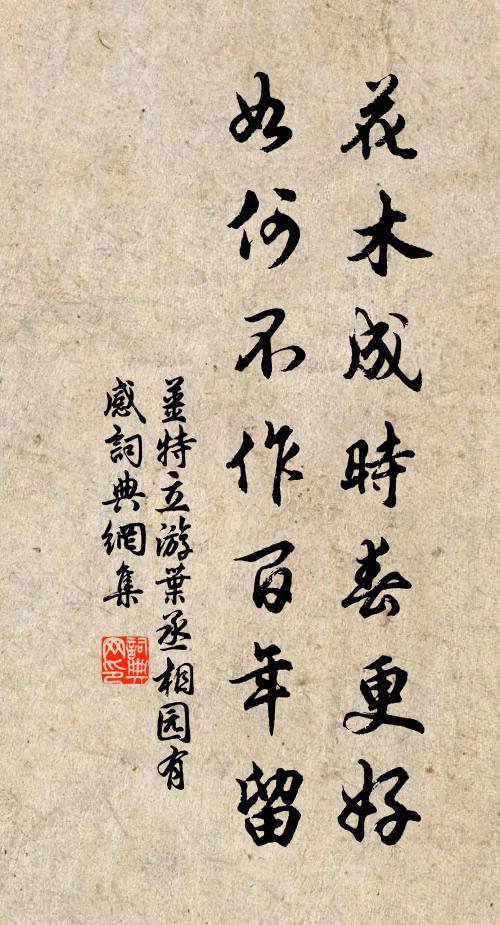 花木成時春更好
如何不作百年留
姜特立游葉丞相园有
感詞典網集
詞典
网印